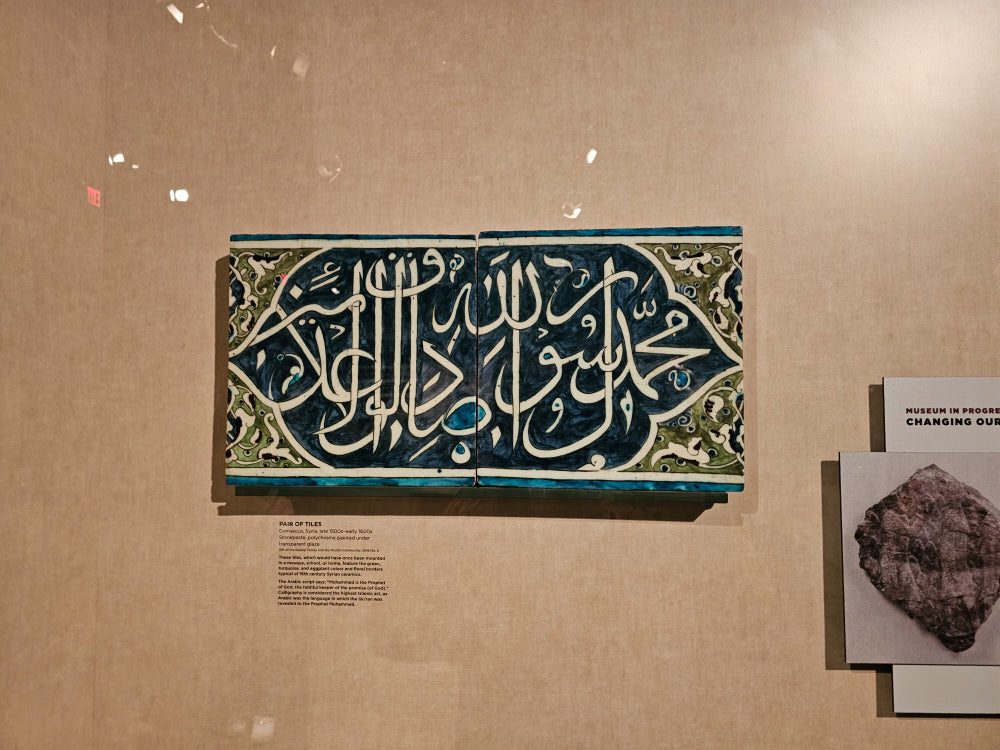 محمد رسول الله صادق الوعد الامين
PAIR OF TILES
Damascus, Syria, late 1500s–early 1600s
Stonepaste, polychrome painted under
transparent glaze
Gift of the Family and the Muslim Community,
These tiles, which would have once been mounted
in a mosque, school, or home, feature the green,
turquoise, and eggplant colors and floral borders
typical of 16th century Syrian ceramics.
The Arabic script says: "Mohammad is the Prophet
of God, the faithful keeper of the promise (of God)."
Calligraphy is considered the highest Islamic art, as
Arabic was the language in which the Qu'ran was
revealed to the Prophet Muhammad.
MUSEUM IN PROGRE
CHANGING OUR